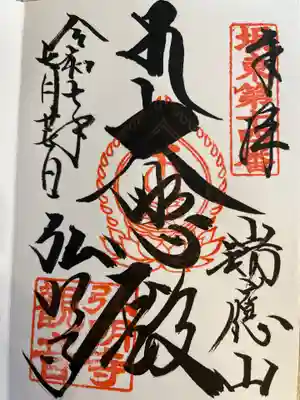 坂東第十四番
奉拝
瑞應山
大悲殿
弘明寺
令和七年
弘明寺
観音